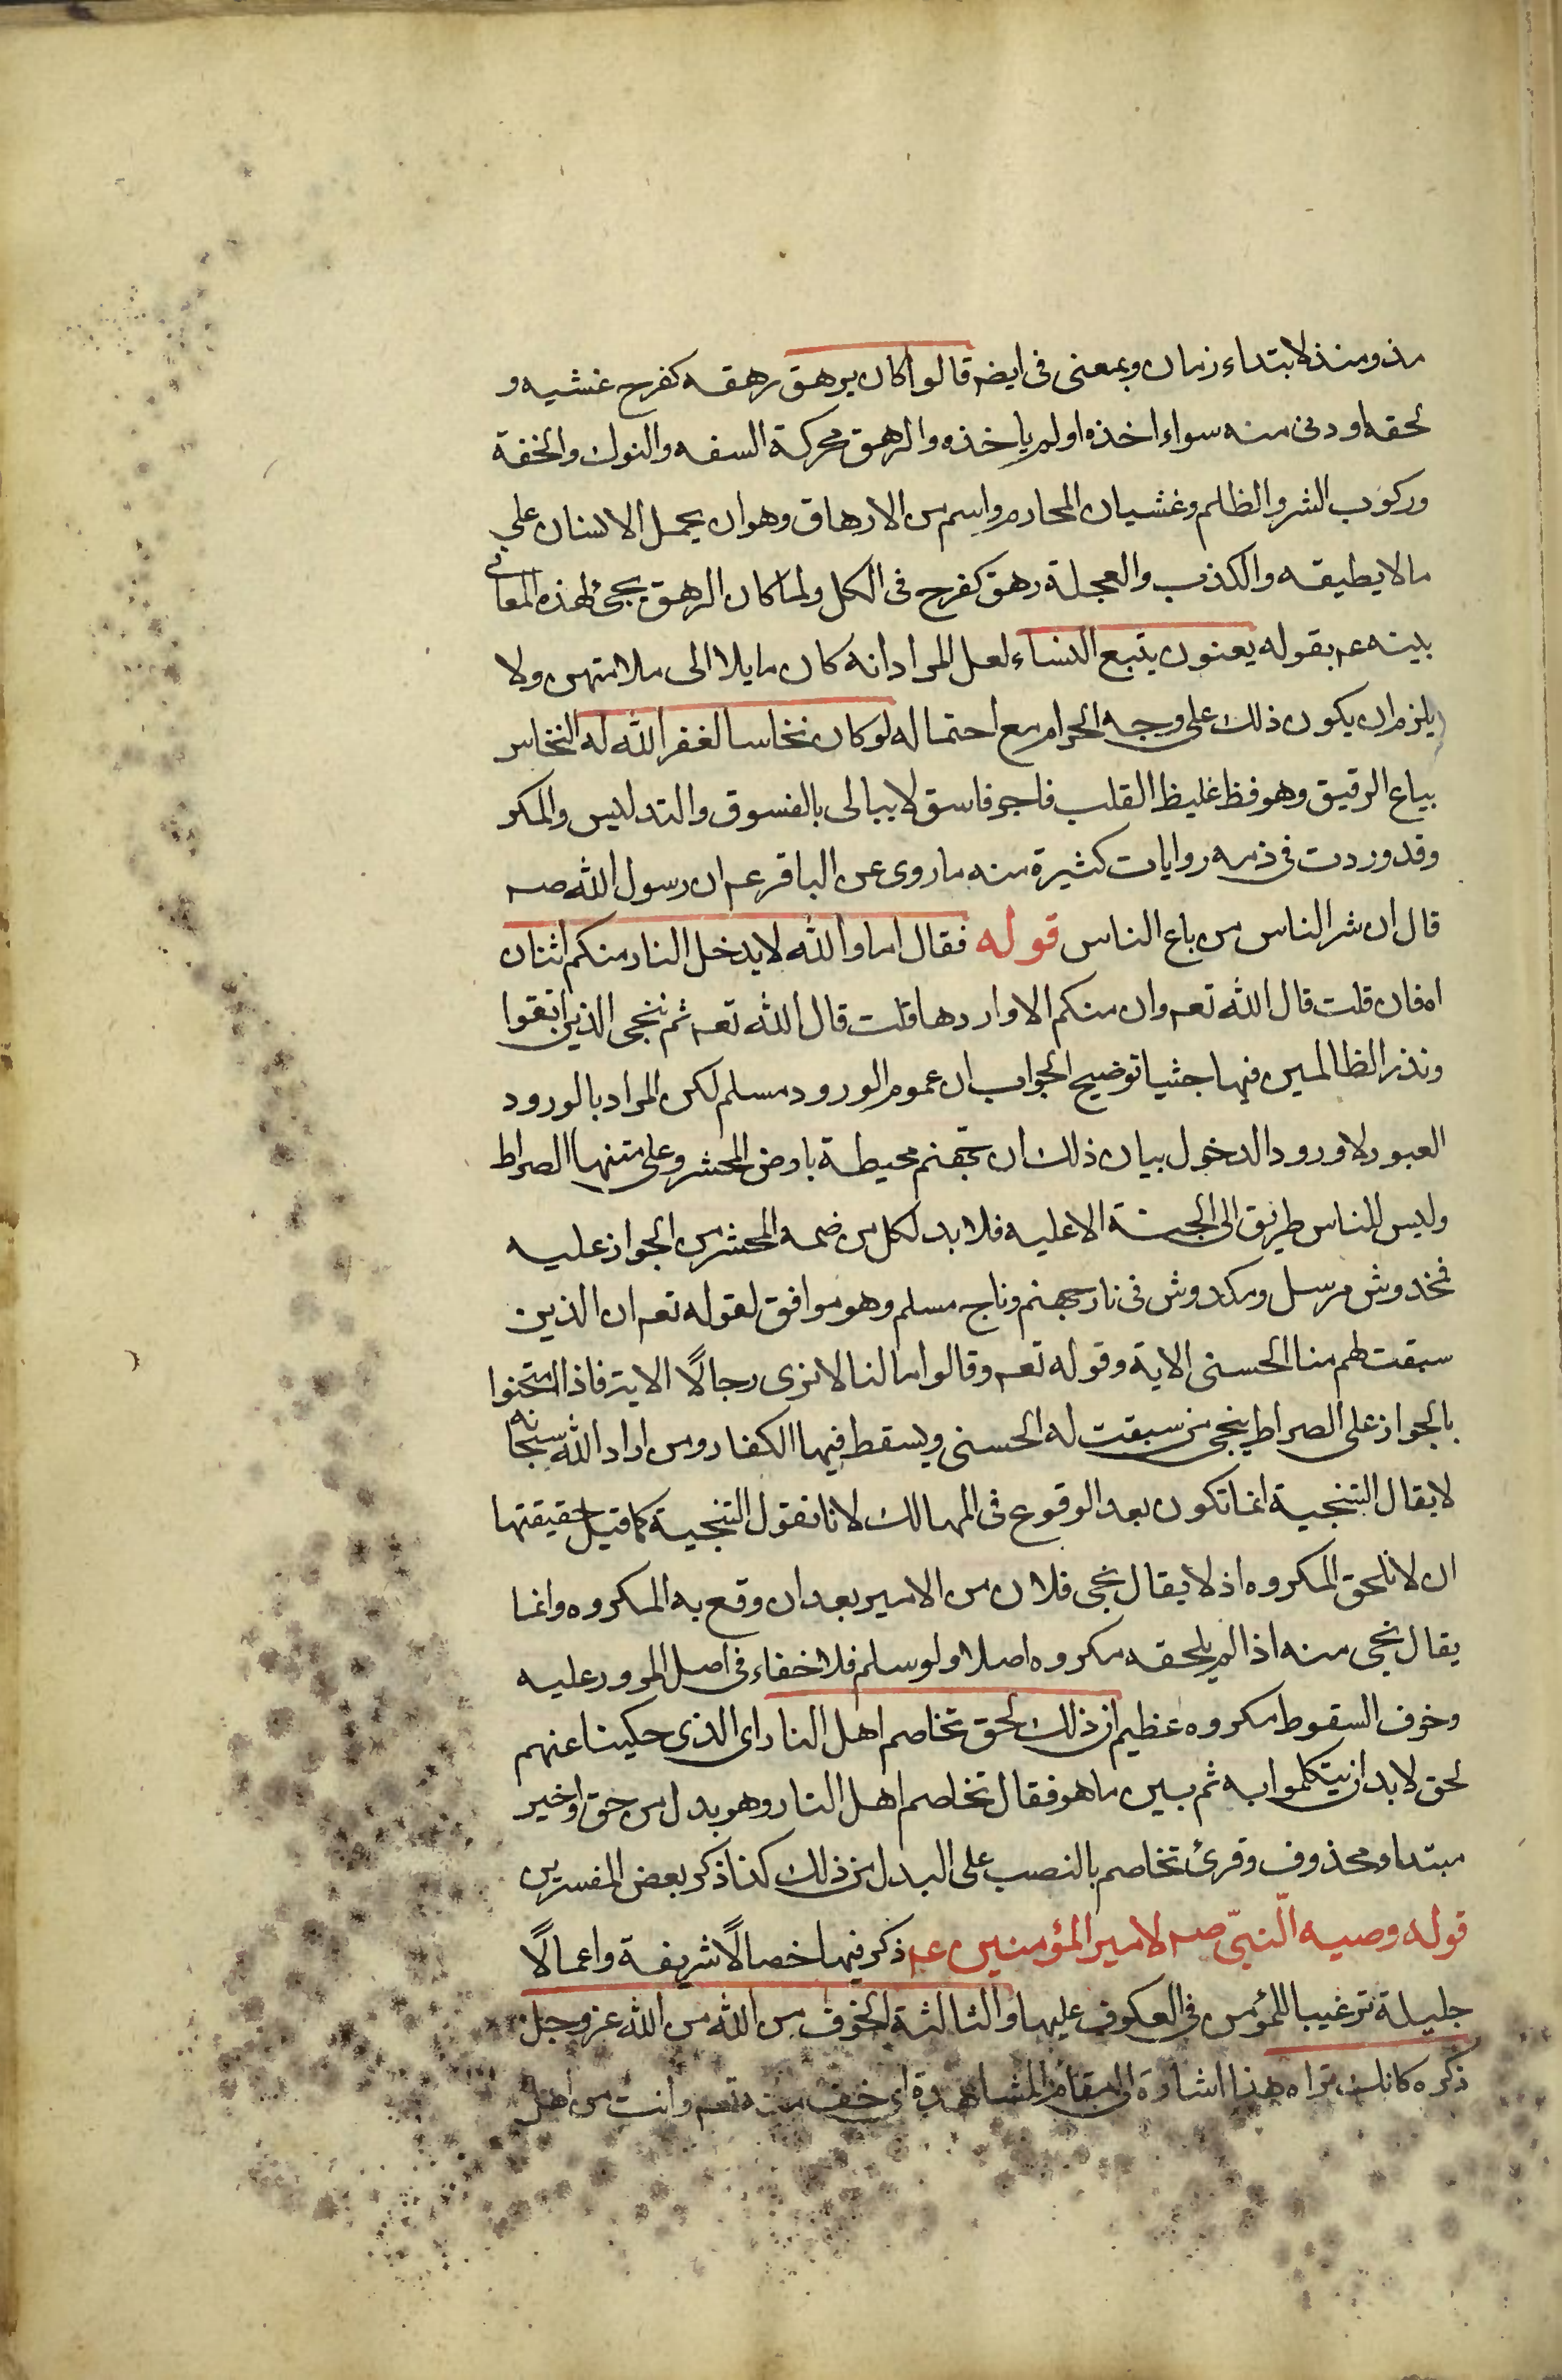 مذ ومنذ لابتداء زمان وبمعنى فى ايضه قالوا كان يرهق رهقه كفرح غشيه و
لحقه او دنى منه سواء اخذه او لم ياخذه والرهق محركة السفه والنوك والخفة
وركوب الشر والظلم وغشيان المحارم واسم من الارهاق وهو ان يحمل الانسان على
ما لا يطيقه والكذب والعجلة رهق كفرح فى الكل ولما كان الرهق يجئ لهذه المعانى
بينه عم بقوله يعنون يتبع النساء لعل المراد انه كان مايلا الى ملامتهن ولا
يلزم ان يكون ذلك على وجه الحرام مع احتماله لو كان نخاسا لغفر الله له النخاس
بياع الرقيق وهو فظ غليظ القلب فاجر فاسق لا يبالى بالفسوق والتدليس والمكر
وقد وردت فى ذمه روايات كثيرة منه ما روى عن الباقر عم ان رسول الله صه
قال ان شر الناس من باع الناس قوله فقال اما والله لا يدخل النار منكم اثنان
اه فان قلت قال الله تعه وان منكم الا واردها قلت قال الله تعه ثم ننجى الذين اتقوا
ونذر الظالمين فيها جثيا توضيح الجواب ان عموم الورود مسلم لكن المراد بالورود
العبور لا ورود الدخول بيان ذلك ان جهنم محيطة بارض المحشر وعلى متنها الصراط
وليس للناس طريق الى الجنة الا عليه فلا بد لكل من ضمه المحشر من الجواز عليه
فخدوش مرسل ومكدوش فى نار جهنم وناج مسلم وهو موافق لقوله تعه ان الذين
سبقت لهم منا الحسنى الاية وقوله تعه وقالوا ما لنا لا نرى رجالًا الاية فاذا امتحنوا
بالجواز على الصراط ينجى من سبقت له الحسنى ويسقط فيها الكفار ومن اراد الله سبحانه
لا يقال التنجية انما تكون بعد الوقوع فى المهالك لانا نقول التنجية كما قيل حقيقتها
ان لا تلحق المكروه اذ لا يقال نجى فلان من الامير بعد ان وقع به المكروه وانما
يقال نجى منه اذا لم يلحقه مكروه اصلا ولو سلم فلا خفاء فى اصل المرور عليه
وخوف السقوط مكروه عظيم ان ذلك لحق تخاصم اهل النار اى الذى حكينا عنهم
لحق لا بد ان يتكلموا به ثم بين ما هو فقال تخاصم اهل النار وهو بدل من حق او خبر
مبتداء محذوف وقرئ تخاصم بالنصب على البدل من ذلك كذا ذكر بعض المفسرين
قوله وصيه النبىّ صه لامير المؤمنين عم ذكر فيها خصالًا شريفة واعمالًا
جليلة ترغيبا للمؤمن فى العكوف عليها والثالثة الخوف من الله من الله عز وجل
ذكره كانك تراه هذا اشارة الى مقام المشاهدة اى خف منه تعه وانت من اهل